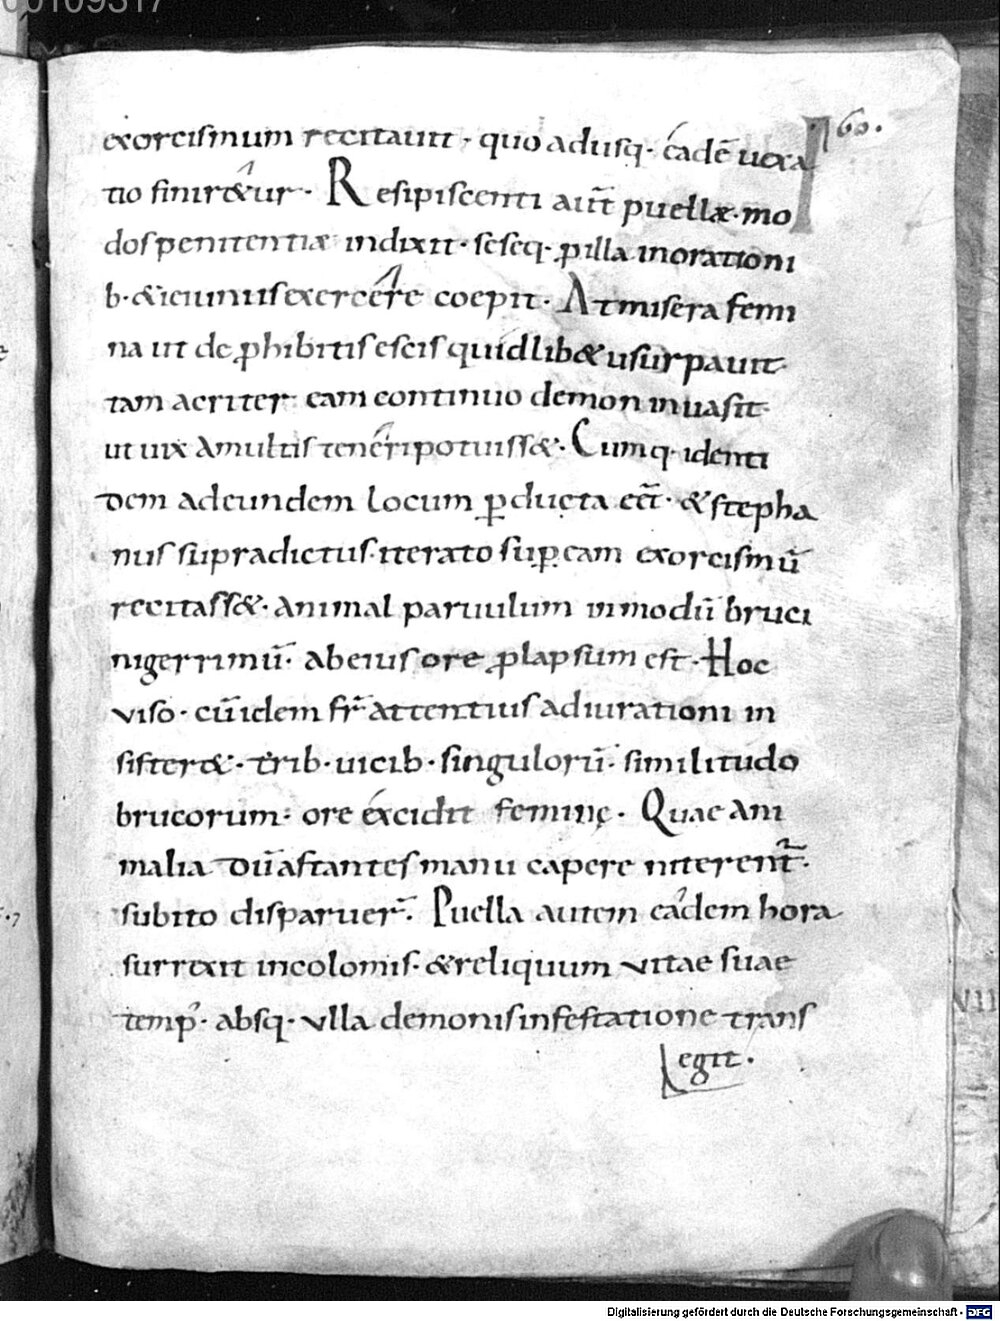 00109317
60.
exorcismum recitauit · quo adusq· eadē uexa
tio finir&ur · Resipiscenti aut̄ puellæ · mo
dos penitentiæ indixit · seseq· ꝓ illa in orationi
b· & ieiuniis exercere coepit · At misera femi
na ut de ꝓhibitis escis quidlib& usurpauit
tam acriter eam continuo demon inuasit
ut uix a multis teneri potuiss& · Cumq· identi
dem ad eundem locum ꝑducta eēt · & stepha
nus supradictus · iterato suꝑ eam exorcismū
recitass& · animal paruulum in modū bruci
nigerrimū · ab eius ore ꝓlapsum est · Hoc
viso · cū idem fr̄ attentius adiurationi in
sister& · trib· uicib· singulorū · similitudo
brucorum · ore excidit feminę · Quae ani
malia dū astantes manu capere niterent̄ ·
subito disparuer̄ · Puella autem eadem hora
surrexit incolomis · & reliquum vitae suae
temp᾽ · absq· vlla demonis infestatione trans
egit ·
VII
Digitalisierung gefördert durch die Deutsche Forschungsgemeinschaft - DFG